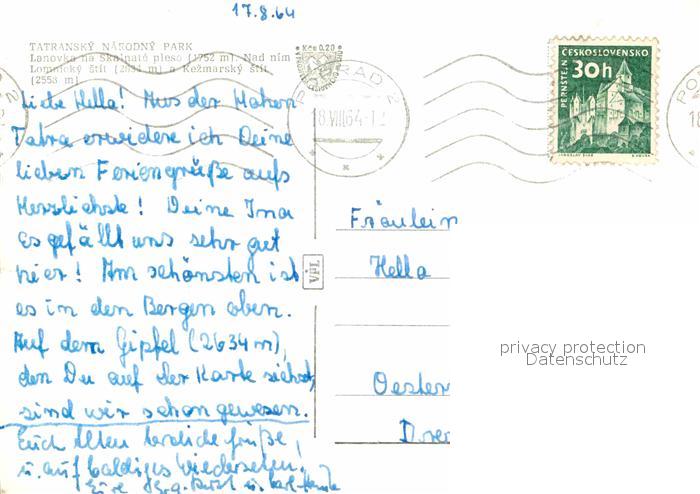 17.8.64
TATRANSKÝ NÁRODNÝ PARK
Lanovka na Skalnaté pleso (1752 m). Nad ním
Lomnický štít (2634 m) a Kežmarský štít
(2558 m)
Kčs 0,20
POPRAD 2
18.VIII.64-12
ČESKOSLOVENSKO
30h
PERNŠTEJN
Liebe Hella! Aus der Hohen
Tatra erwidere ich Deine
lieben Feriengrüße aufs
Herzlichste! Deine Ina
Es gefällt uns sehr gut
hier! Am schönsten ist
es in den Bergen oben.
Auf dem Gipfel (2634 m),
den Du auf der Karte siehst,
sind wir schon gewesen.
Euch Allen herzliche Grüße,
u. auf baldiges Wiedersehen!
Eure
VPL
Fräulein
Hella
Oester
Dre
privacy protection
Datenschutz